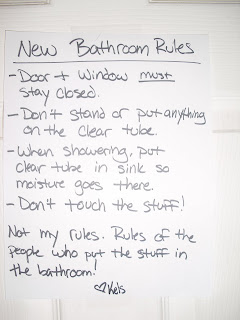 New Bathroom Rules
- Door + Window must
stay closed.
- Don't stand or put anything
on the clear tube.
- When showering, put
clear tube in sink so
moisture goes there.
- Don't touch the stuff!
Not my rules. Rules of the
people who put the stuff in
the bathroom!
♡ Kels